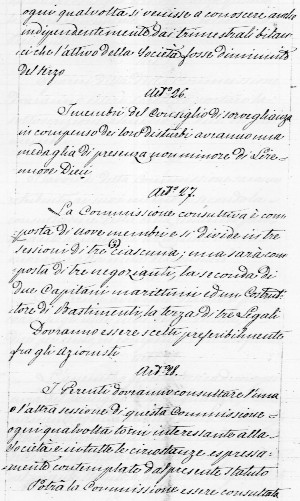 ogni qualvolta si venisse a conoscere anche
indipendentemente dai trimestrali bilan-
ci che l'attivo della Società fosse diminuito
del terzo
Art.° 26.
I membri del Consiglio di sorveglianza
in compenso dei loro disturbi avranno una
medaglia di presenza non minore di Lire
nuove Dieci
Art.° 27.
La Commissione consultiva è com-
posta di nove membri e si divide in tre
sessioni di tre (3) ciascuna; una sarà com-
posta di tre negozianti, la seconda di
due Capitani marittimi ed un Costrut-
tore di Bastimenti, la terza di tre Legali
Dovranno essere scelti preferibilmente
fra gli Azionisti
Art.° 28.
I Gerenti dovranno consultare l'una
o l'altra sessione di questa Commissione
ogni qualvolta torni interessante alla
Società e in tutte le circostanze espressa-
mente contemplate dal presente statuto
Potrà la Commissione essere consultata